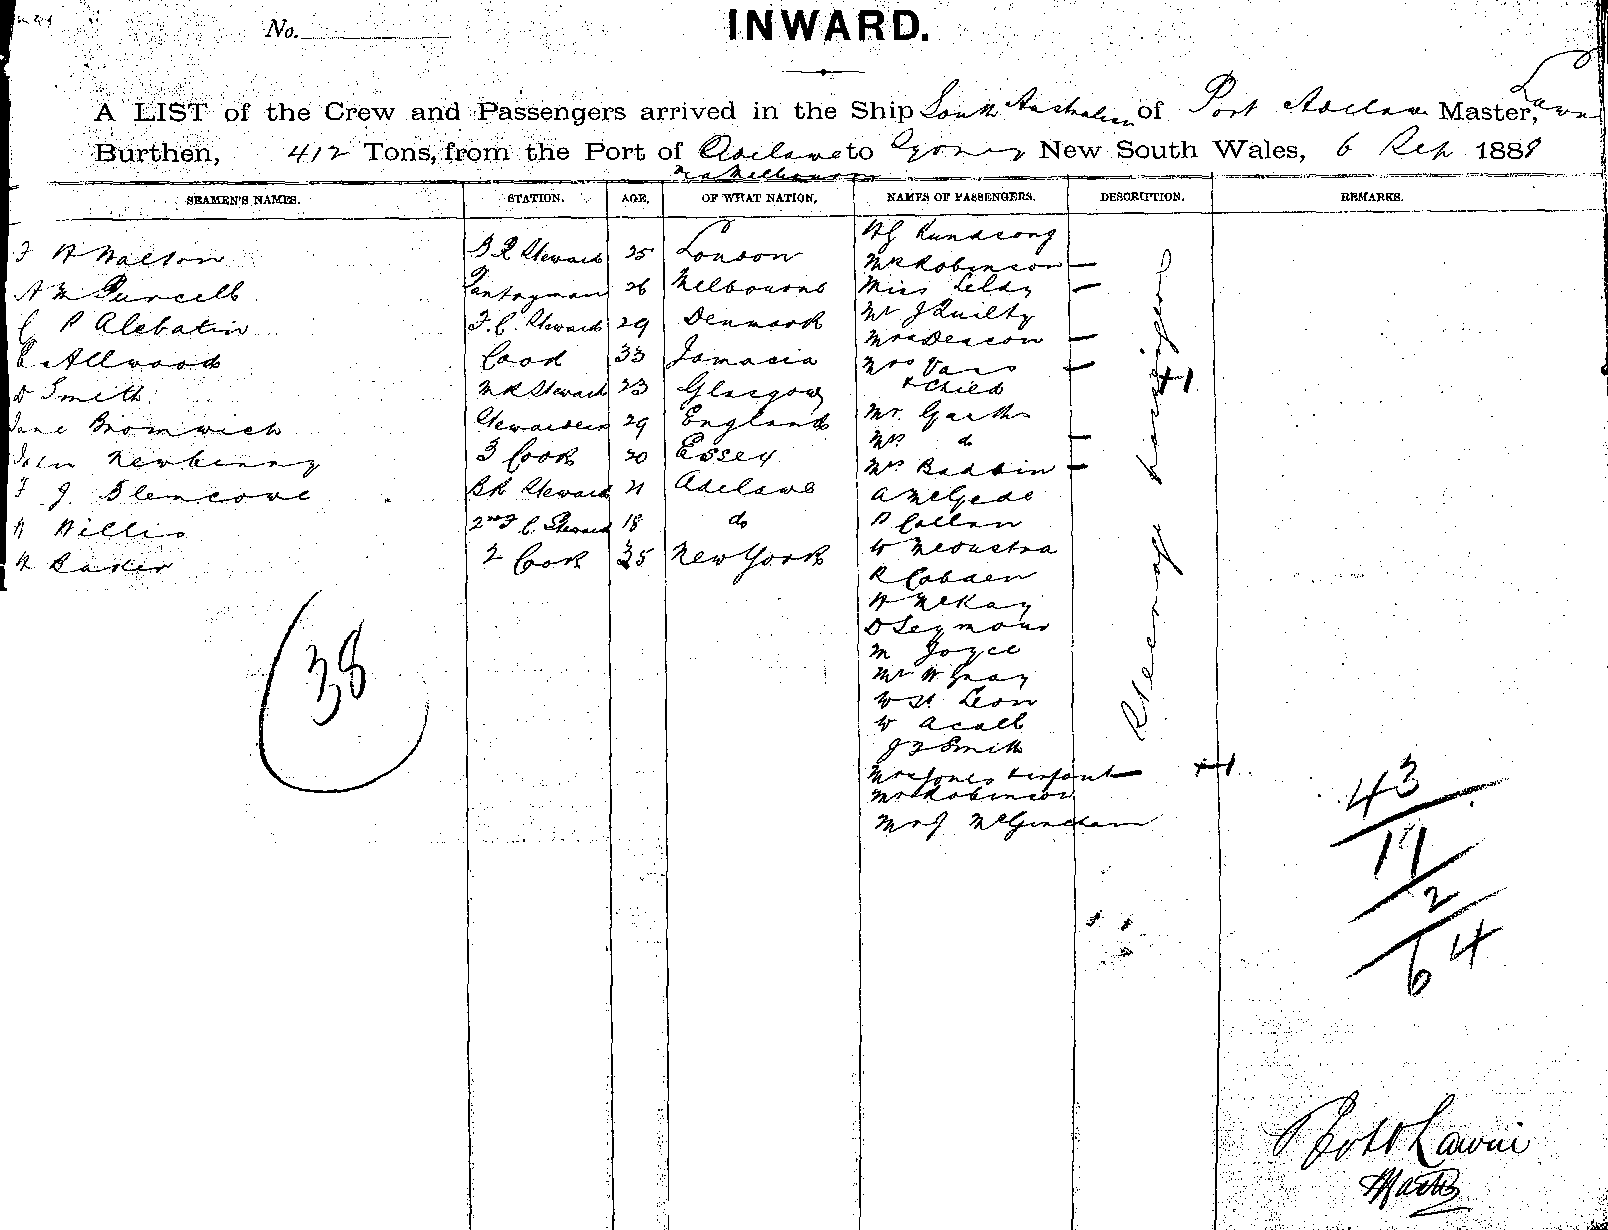 No.
INWARD.
A LIST of the Crew and Passengers arrived in the Ship South Australian of Port Adelaide Master,
Burthen, 412 Tons, from the Port of Adelaide to Sydney New South Wales, 6 Sep 1888
via Melbourne
SEAMEN'S NAMES. STATION. AGE. OF WHAT NATION. NAMES OF PASSENGERS. DESCRIPTION. REMARKS.
F H Walton Steward 25 London
A M Purcell Pantryman 26 Melbourne
C P F.C. Steward 29 Denmark
Allwood Cook 33 Jamacia
D Smith MR Steward 23 Glasgow
Jane Bromwich Stewardess 29 England
John Newberry 3 Cook 20 Essex
F J. Blencowe BR Steward 21 Adelaide
H Willis 2nd F C. Steward 18 do
H Baker 2 Cook 35 New York
38
HG
Mr Robinson
Miss
Mr J Quilty
Mrs Deacon
Mrs
+ Child
Mr. Garth
Mrs do
Mrs
A McGede
P Callan
W
R Cobden
H McKay
D Seymour
M Joyce
Mr H Gray
W St Leon
W
J F Smith
Mrs Jones + infant
Mrs Robinson
Mrs J
+1
+1
43
17
2
64
Master